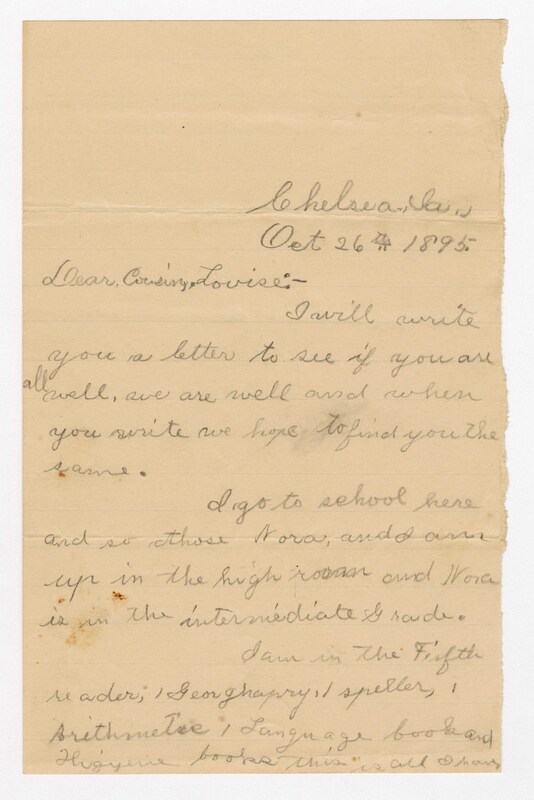 Chelsea, Ia.,
Oct 26th 1895.
Dear, Cousin, Lovise:-
I will write
you a letter to see if you are
all well, we are well and when
you write we hope to find you the
same.
I go to school here
and so those Nora, and I am
up in the high room and Nora
is in the intermediate Grade.
I am in the Fifth
reader, 1 Georghapry, 1 speller, 1
Arithmetic 1 Language book and
Higyene books this is all I have